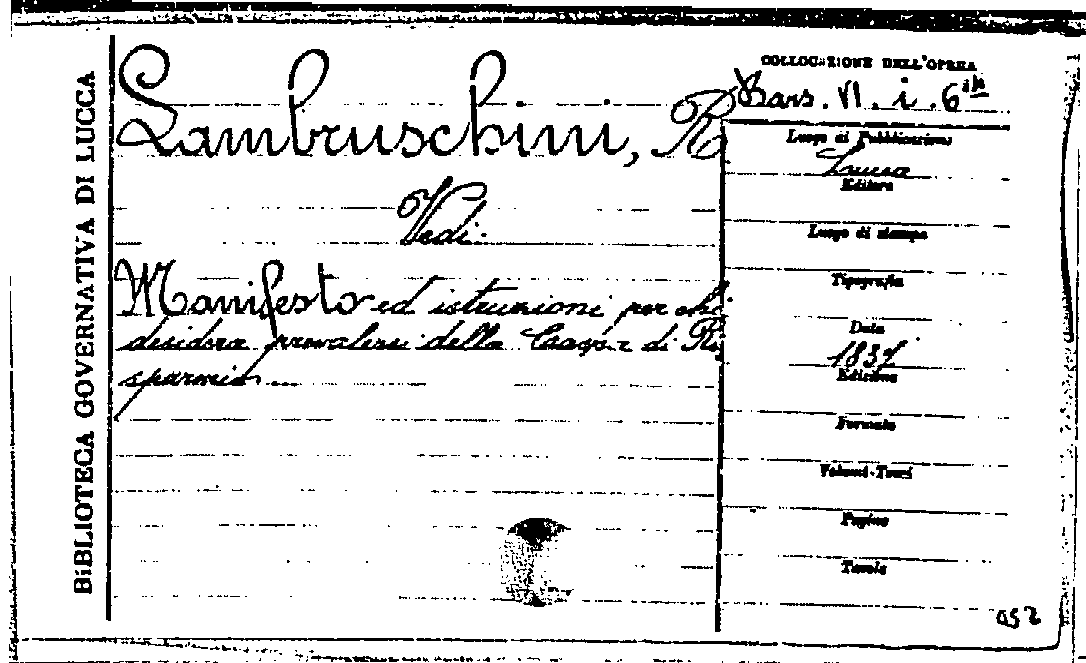 BiBLIOTECA GOVERNATIVA DI LUCCA
Lambruschini, R
Vedi.
Manifesto ed istruzioni per chi
desidera prevalersi della Cassa di Ri
sparmio...
COLLOCAZIONE DELL'OPERA
VI. i. 6
Luogo di Pubblicazione
Lucca
Editore
Luogo di stampa
Tipografia
Data
1837
Edizione
Formato
Volumi-Tomi
Pagine
Tavole